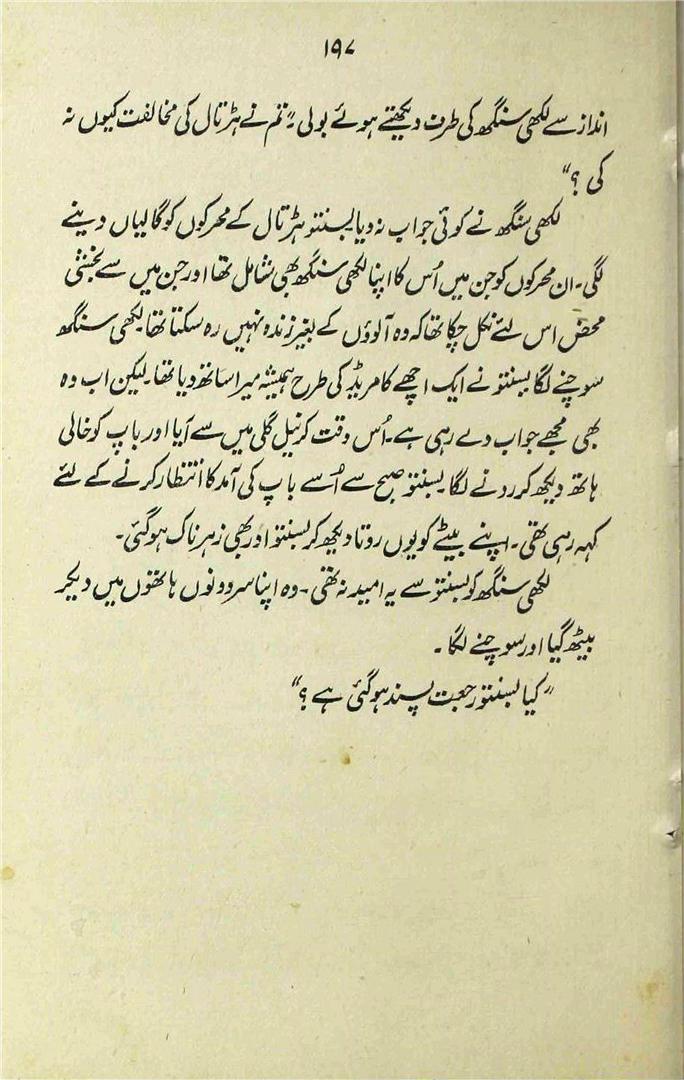 ۱۹۷
انداز سے لکھی سنگھ کی طرف دیکھتے ہوئے بولی۔ "تم نے ہڑتال کی مخالفت کیوں نہ
کی؟"
لکھی سنگھ نے کوئی جواب نہ دیا۔ بسنتو ہڑتال کے محرکوں کو گالیاں دینے
لگی۔ ان محرکوں کو جن میں اُس کا اپنا لکھی سنگھ بھی شامل تھا اور جن میں سے بخشی
محض اس لئے نکل چکا تھا کہ وہ آلوؤں کے بغیر زندہ نہیں رہ سکتا تھا۔ لکھی سنگھ
سوچنے لگا بسنتو نے ایک اچھے کامریڈ کی طرح ہمیشہ میرا ساتھ دیا تھا۔ لیکن اب وہ
بھی مجھے جواب دے رہی ہے۔ اُس وقت کرنیل گلی میں سے آیا اور باپ کو خالی
ہاتھ دیکھ کر رونے لگا۔ بسنتو صبح سے اُسے باپ کی آمد کا انتظار کرنے کے لئے
کہہ رہی تھی۔ اپنے بیٹے کو یوں روتا دیکھ کر بسنتو اور بھی زہرناک ہوگئی۔
لکھی سنگھ کو بسنتو سے یہ امید نہ تھی۔ وہ اپنا سر دونوں ہاتھوں میں دیکر
بیٹھ گیا اور سوچنے لگا۔
"کیا بسنتو رجعت پسند ہوگئی ہے؟"